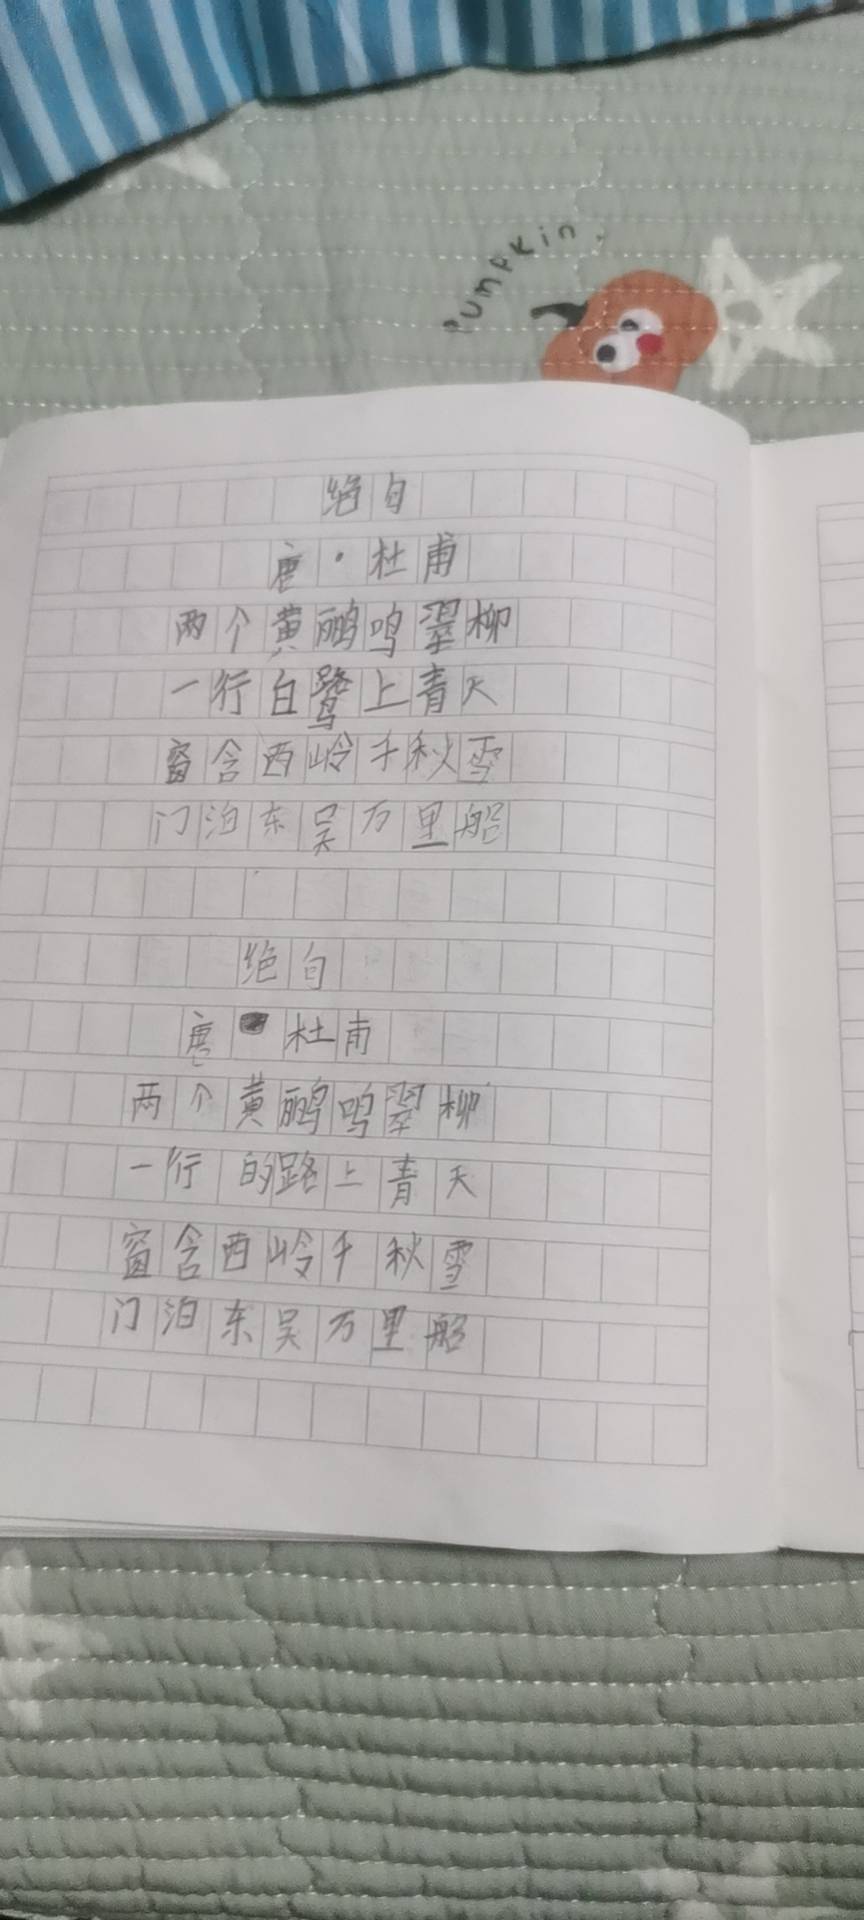 Pumpkin
绝句
唐·杜甫
两个黄鹂鸣翠柳
一行白鹭上青天
窗含西岭千秋雪
门泊东吴万里船
绝句
唐 杜甫
两个黄鹂鸣翠柳
一行的路上青天
窗含西岭千秋雪
门泊东吴万里船